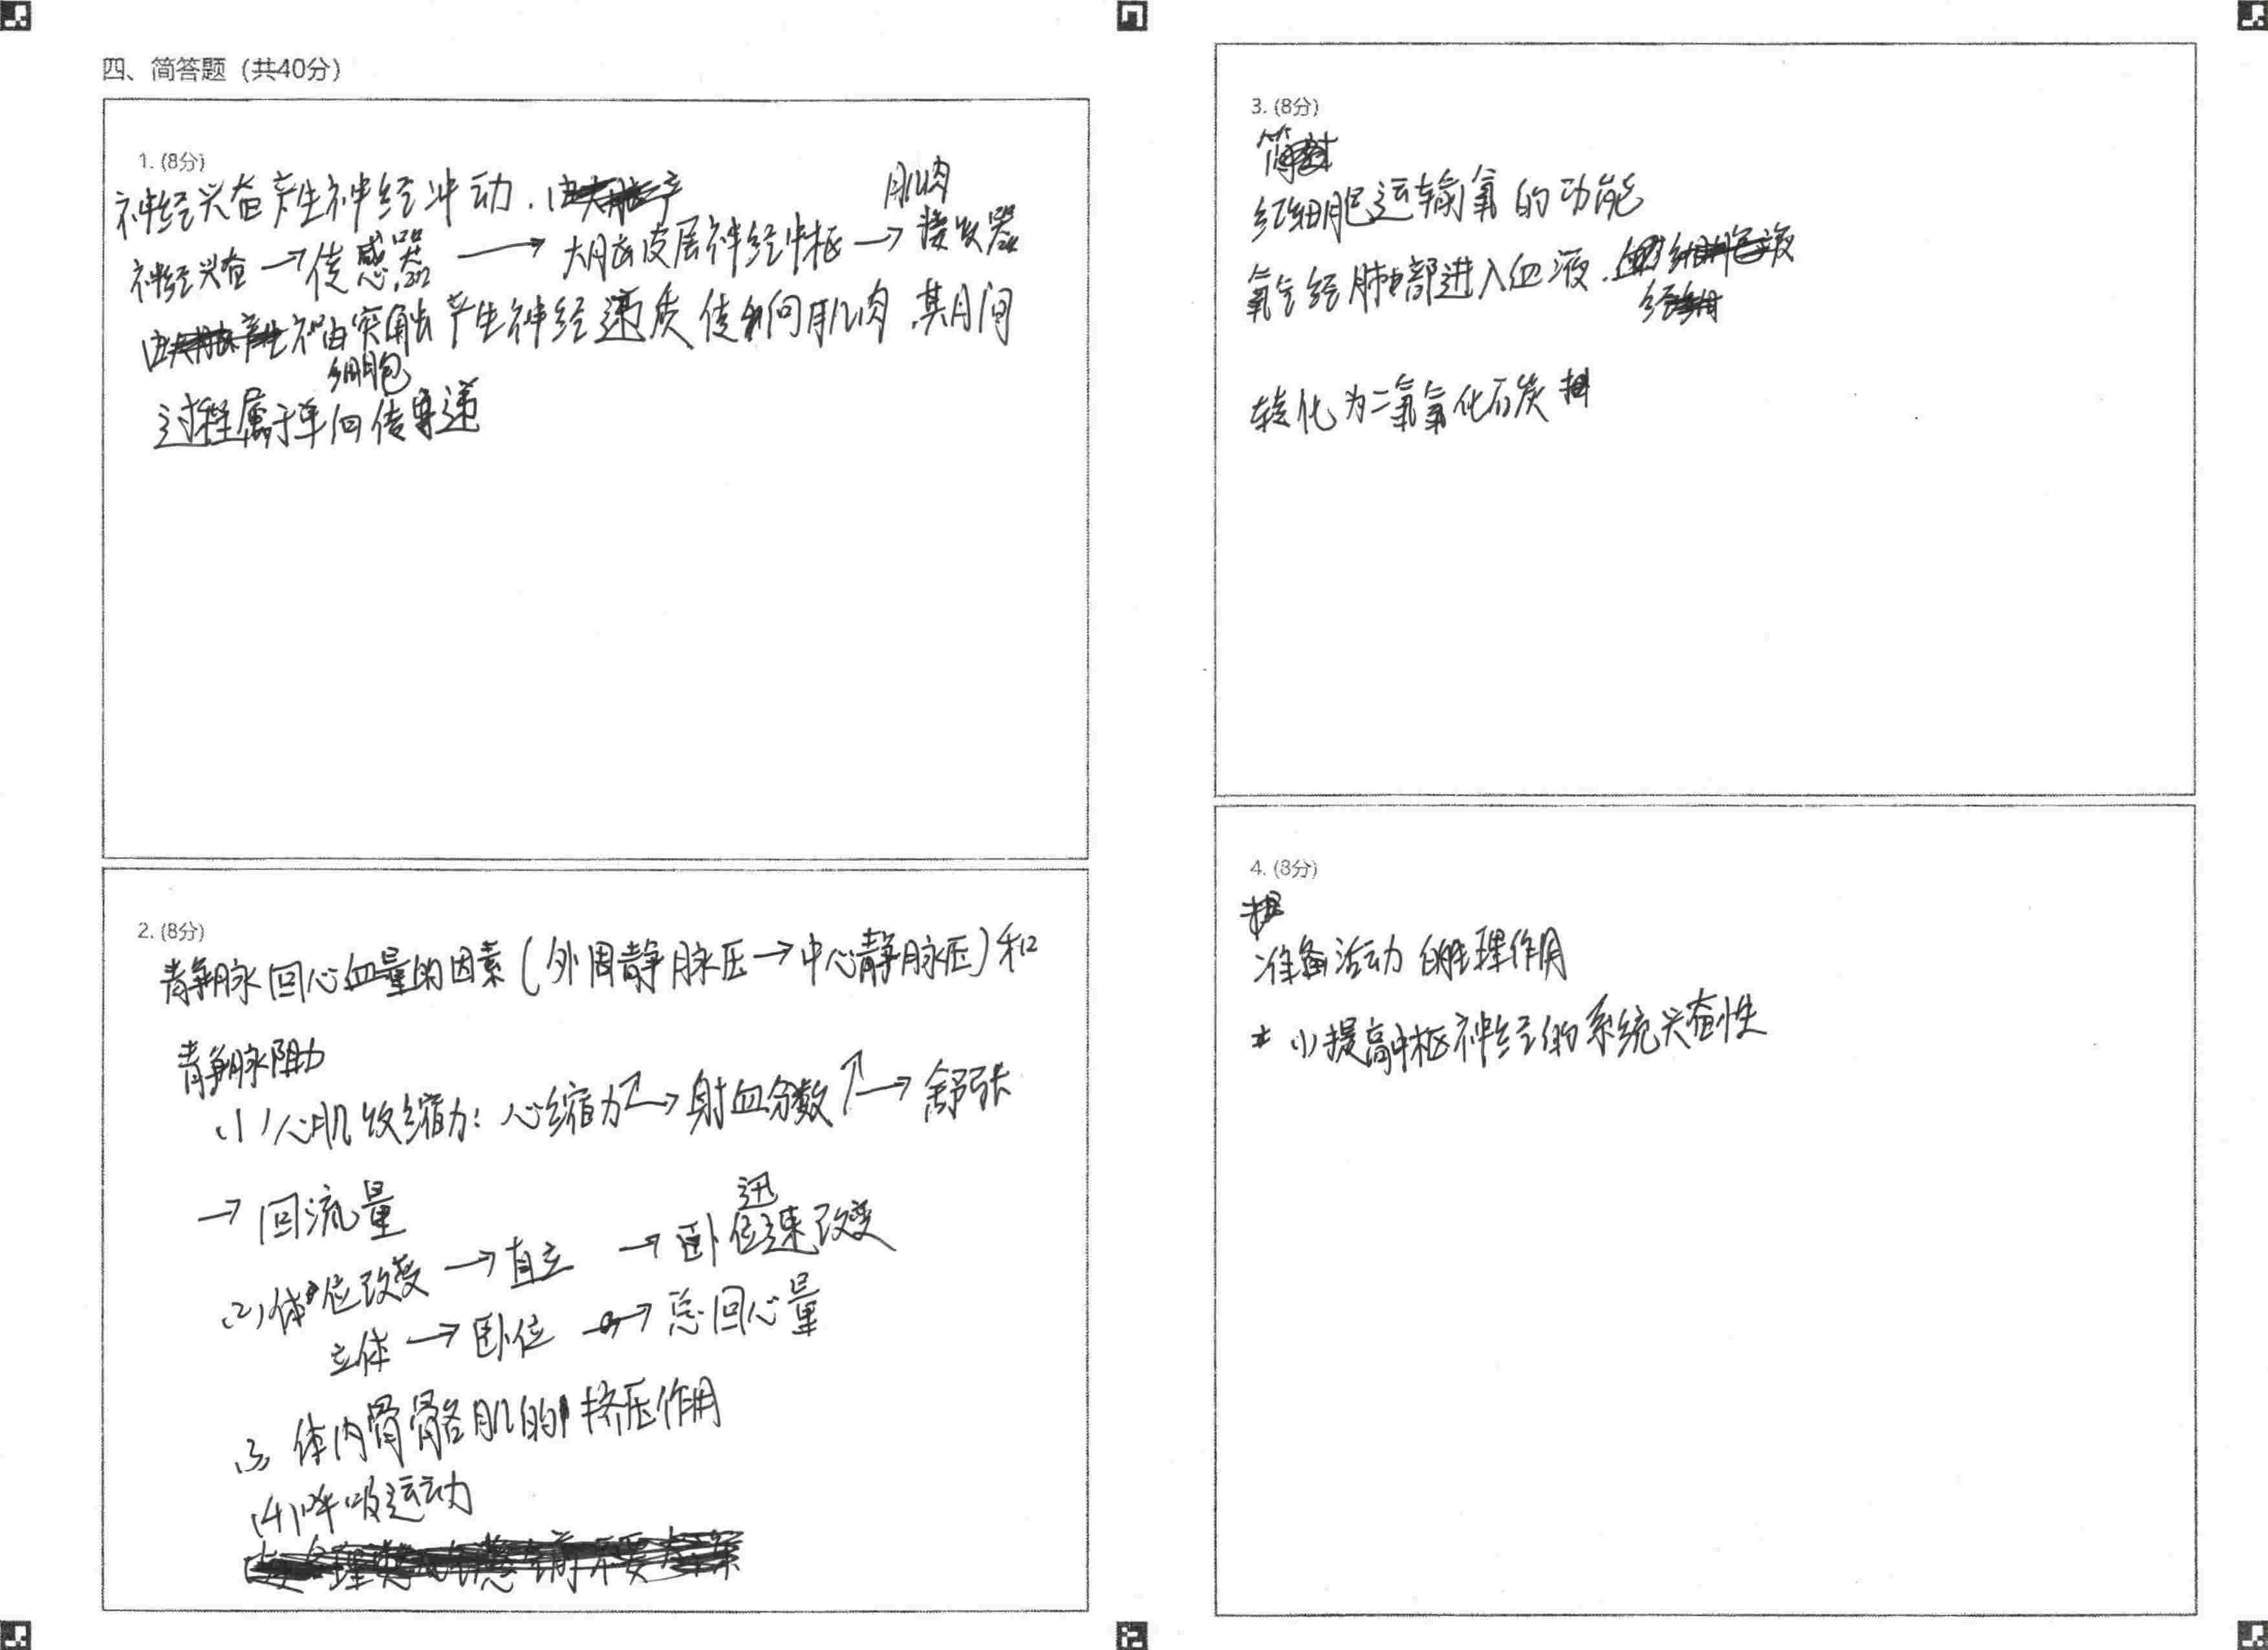 四、简答题（共40分）
1. (8分)
神经兴奋产生神经冲动.
肌肉
神经兴奋→传感器→大脑皮层神经中枢→接收器
由突触产生神经递质传向肌肉,其月间
细胞
过程属于单向传递
2. (8分)
静脉回心血量的因素(外周静脉压→中心静脉压)和
静脉阻力
(1)心肌收缩力：心缩力↑→射血分数↑→舒张
→回流量
迅
(2)体位改变→直立→卧位速改变
立体→卧位→总回心量
(3)体内骨骼肌的挤压作用
(4)呼吸运动
3. (8分)
红细胞运输氧的功能
氧气经肺部进入血液.
转化为二氧氧化碳
4. (8分)
准备活动的生理作用
(1)提高中枢神经的系统兴奋性